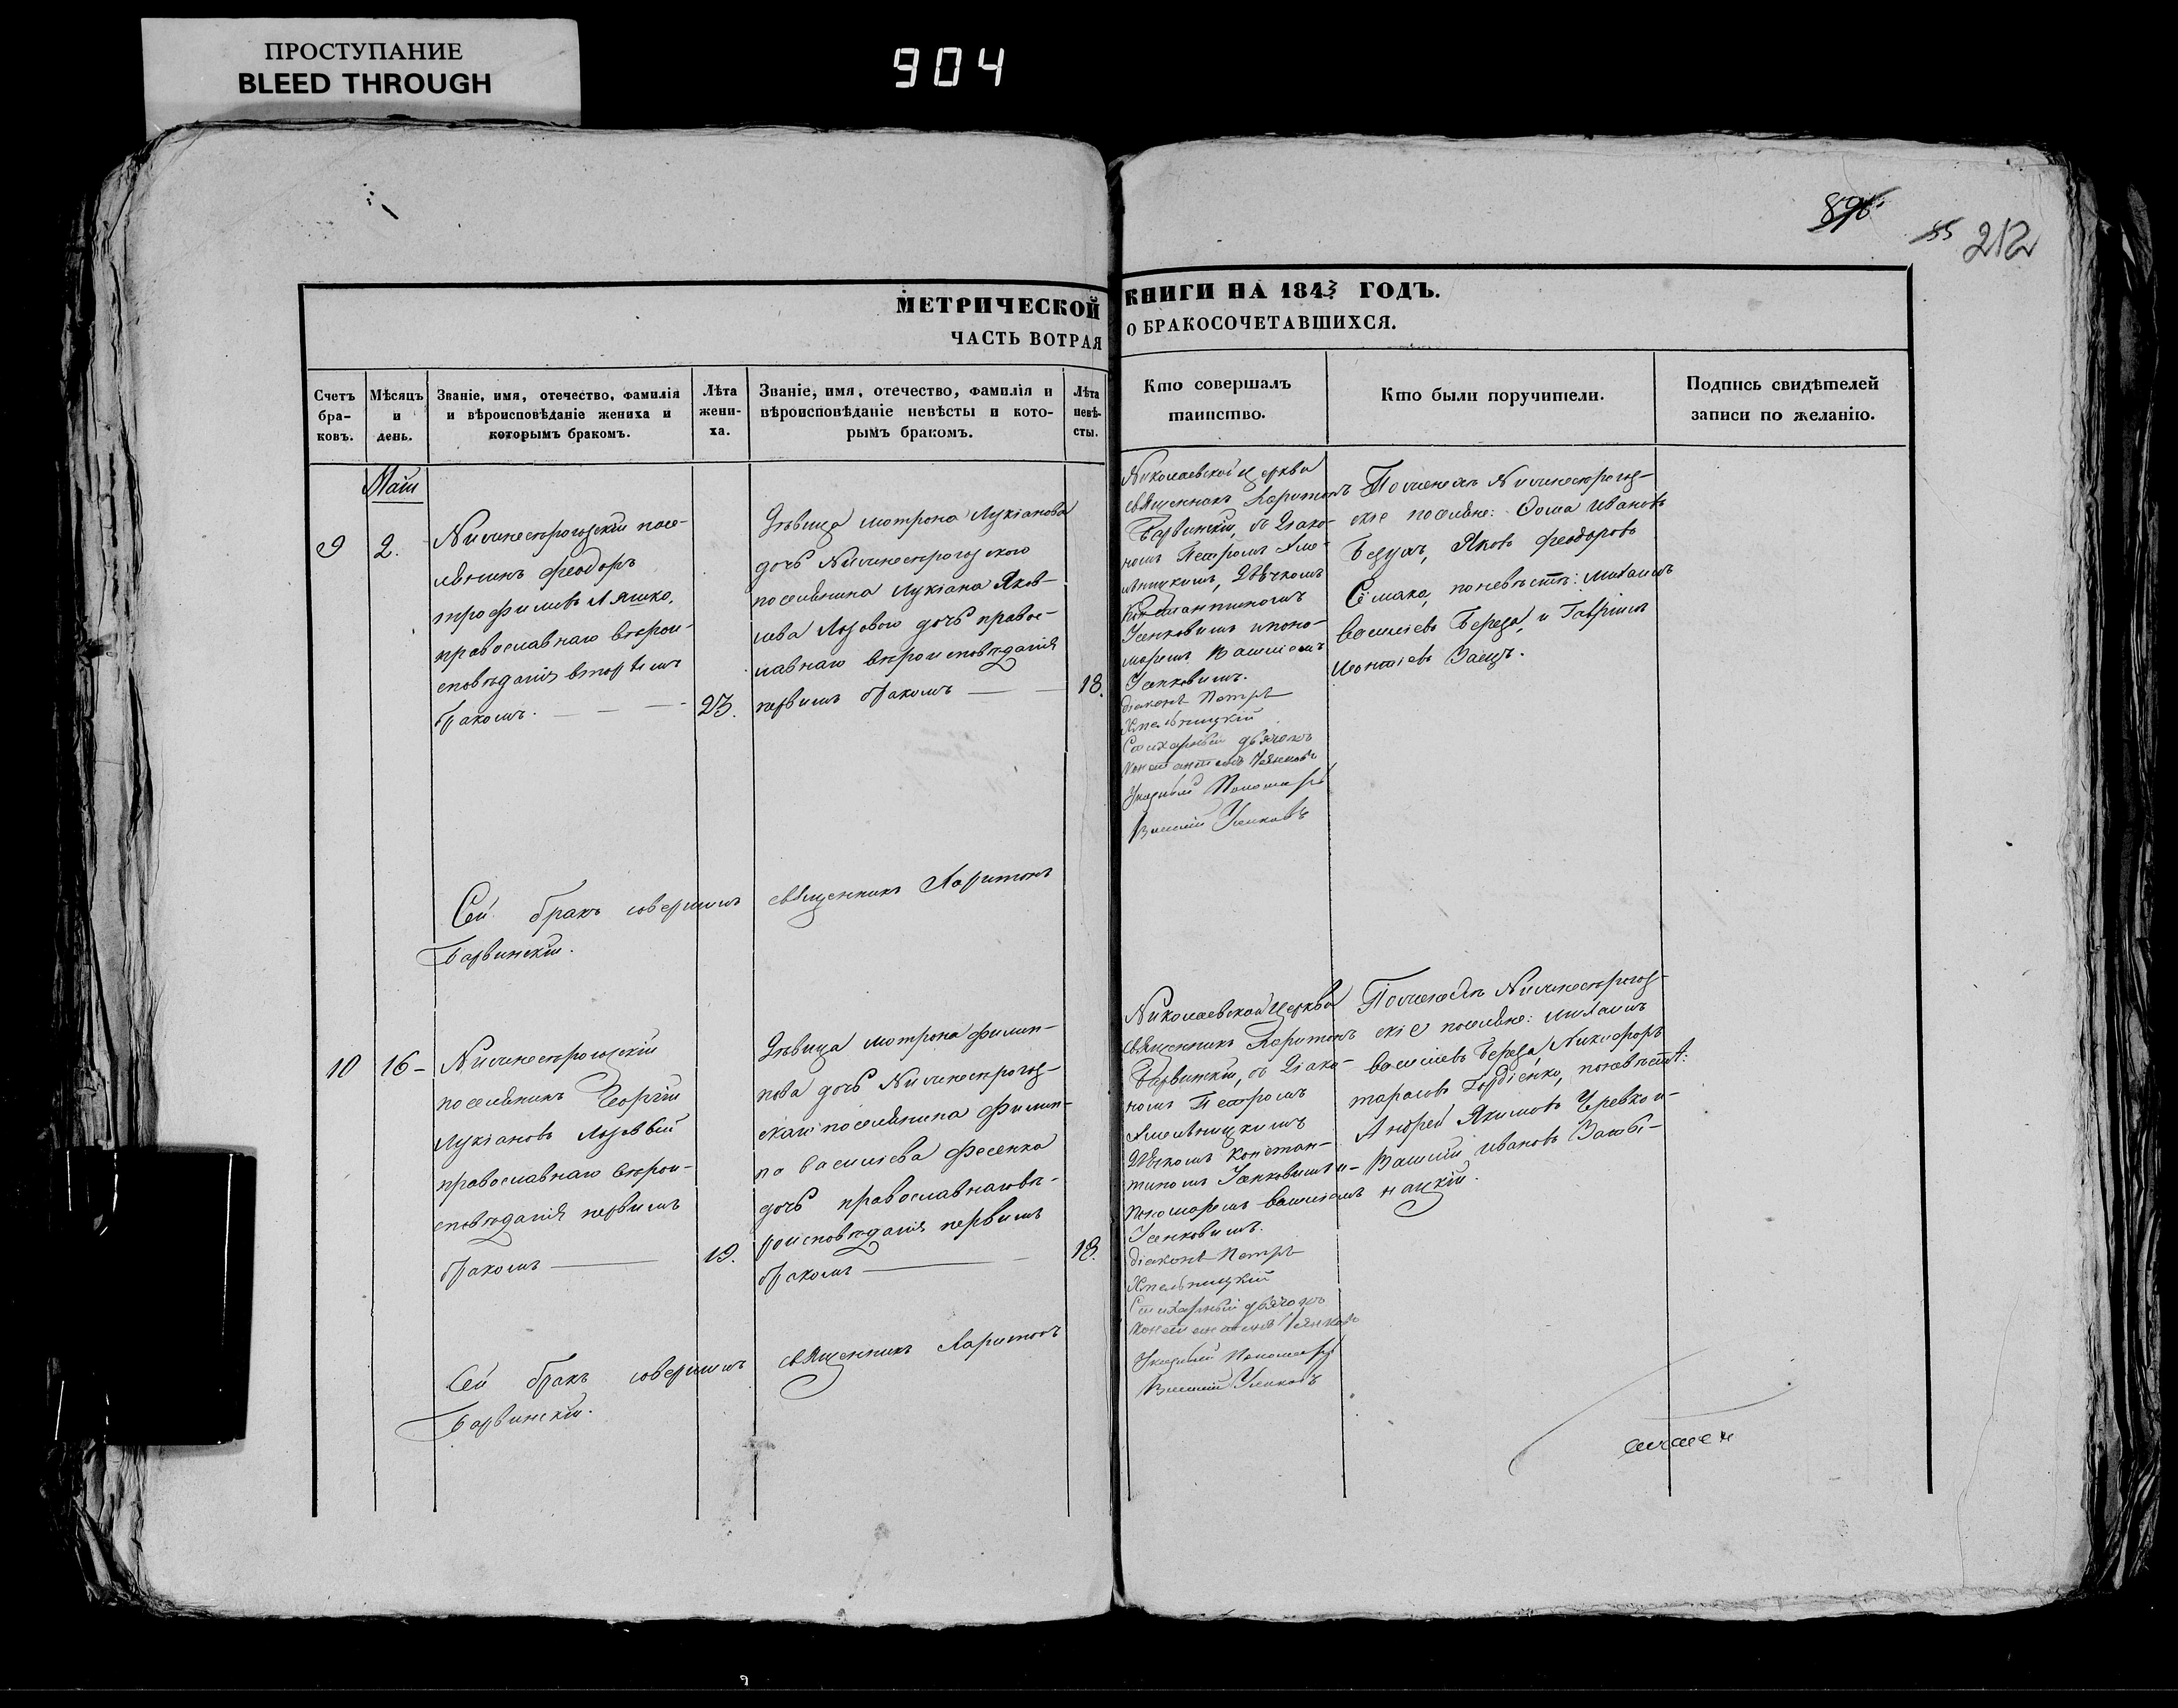 ПРОСТУПАНИЕ
BLEED THROUGH
904
896
55 212
МЕТРИЧЕСКОЙ КНИГИ НА 1843 ГОДЪ.
ЧАСТЬ ВОТРАЯ О БРАКОСОЧЕТАВШИХСЯ.
Счетъ
бра-
ковъ.
Мѣсяцъ
и
день.
Званіе, имя, отечество, фамилія
и вѣроисповѣданіе жениха и
которымъ бракомъ.
Лѣта
жени-
ха.
Званіе, имя, отечество, фамилія и
вѣроисповѣданіе невѣсты и кото-
рымъ бракомъ.
Лѣта
невѣ-
сты.
Кто совершалъ
таинство.
Кто были поручители.
Подпись свидѣтелей
записи по желанію.
Маій
9
2.
Нижнесѣрогозскій посе-
лянинъ Феодоръ
трофимовъ Ляшко,
православнаго вѣрои-
сповѣданія вторымъ
бракомъ.
23.
Дѣвица мотрона Лукіанова
дочь Нижнесѣрогозского
поселянина Лукіана Яков-
лева Лозового дочь правос-
лавнаго вѣроисповѣданія
первымъ бракомъ
18.
Николаевской церкви
священникъ Харитонъ
Барвинскій, съ Діако-
номъ Петромъ Хме-
льницкимъ, Дьячкомъ
Константиномъ
Усенковимъ и поно-
маремъ Василіемъ
Усенковимъ.
Діаконъ Петръ
Хмельницкій
Стихарный дьячокъ
Константинъ Усенковъ
Указный Пономарь
Василій Усенковъ
По женихѣ Нижнесѣрогоз-
скіе поселяне: Фома ивановъ
Яковъ феодоровъ
Симака, по невѣстѣ: михаилъ
василіевъ Береза, и Гавріилъ
Леонтіевъ Заецъ.
Сей бракъ совершилъ священникъ Харитонъ
Барвинскій.
10
16-
Нижнесѣрогозскій
поселянинъ Георгій
Лукіановъ Лозовый
православнаго вѣрои-
сповѣданія первимъ
бракомъ
19.
Дѣвица мотрона филип-
пова дочь Нижнесѣрогоз-
скаго поселянина филип-
па василіева фесенка
дочь православнаго вѣ-
роисповѣданія первимъ
бракомъ
18.
Николаевской церкви
священникъ Харитонъ
Барвинскій, съ Діако-
номъ Петромъ
Хмельницкимъ
Дьячкомъ Констан-
тиномъ Усенковимъ и
пономаремъ василіемъ
Усенковимъ.
Діаконъ Петръ
Хмельницкій
Стихарный дьячокъ
Константинъ Усенковъ
Указный Пономарь
Василій Усенковъ
По женихѣ Нижнесѣрогоз-
скіе поселяне: михаилъ
василіевъ Береза, Никифоръ
тарасовъ Гордіенко, по невѣстѣ:
Андрей Якимовъ Черевко и
Василій ивановъ
Сей бракъ совершилъ священникъ Харитонъ
Барвинскій.